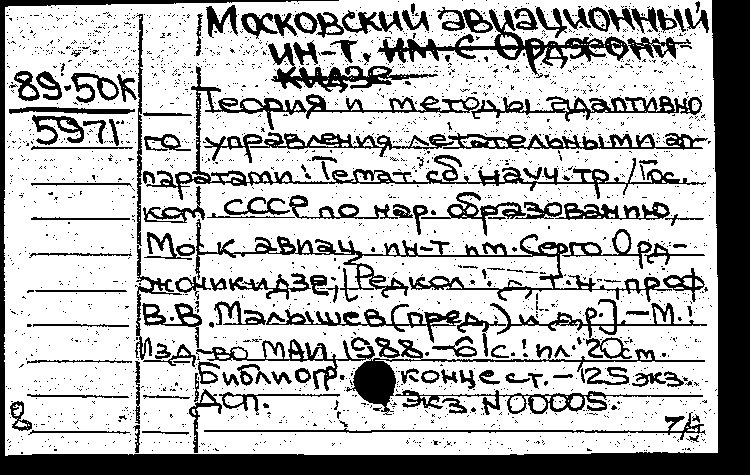 Московский авиационный
ин-т. им. С. Орджони-
кидзе.
89-50К
5971
Теория и методы адаптивно
го управления летательными ап-
паратами: Темат. сб. науч. тр. / Гос.
ком. СССР по нар. образованию,
Моск. авиац. ин-т им. Серго Орд-
жоникидзе; [Редкол.: д. т. н., проф.
В.В. Малышев (пред.) и др.]. - М.:
Изд-во МАИ, 1988. - 61с.: ил.; 20см.
Библиогр. в конце ст. - 125 экз.
ДСП. Экз. N00005.
8